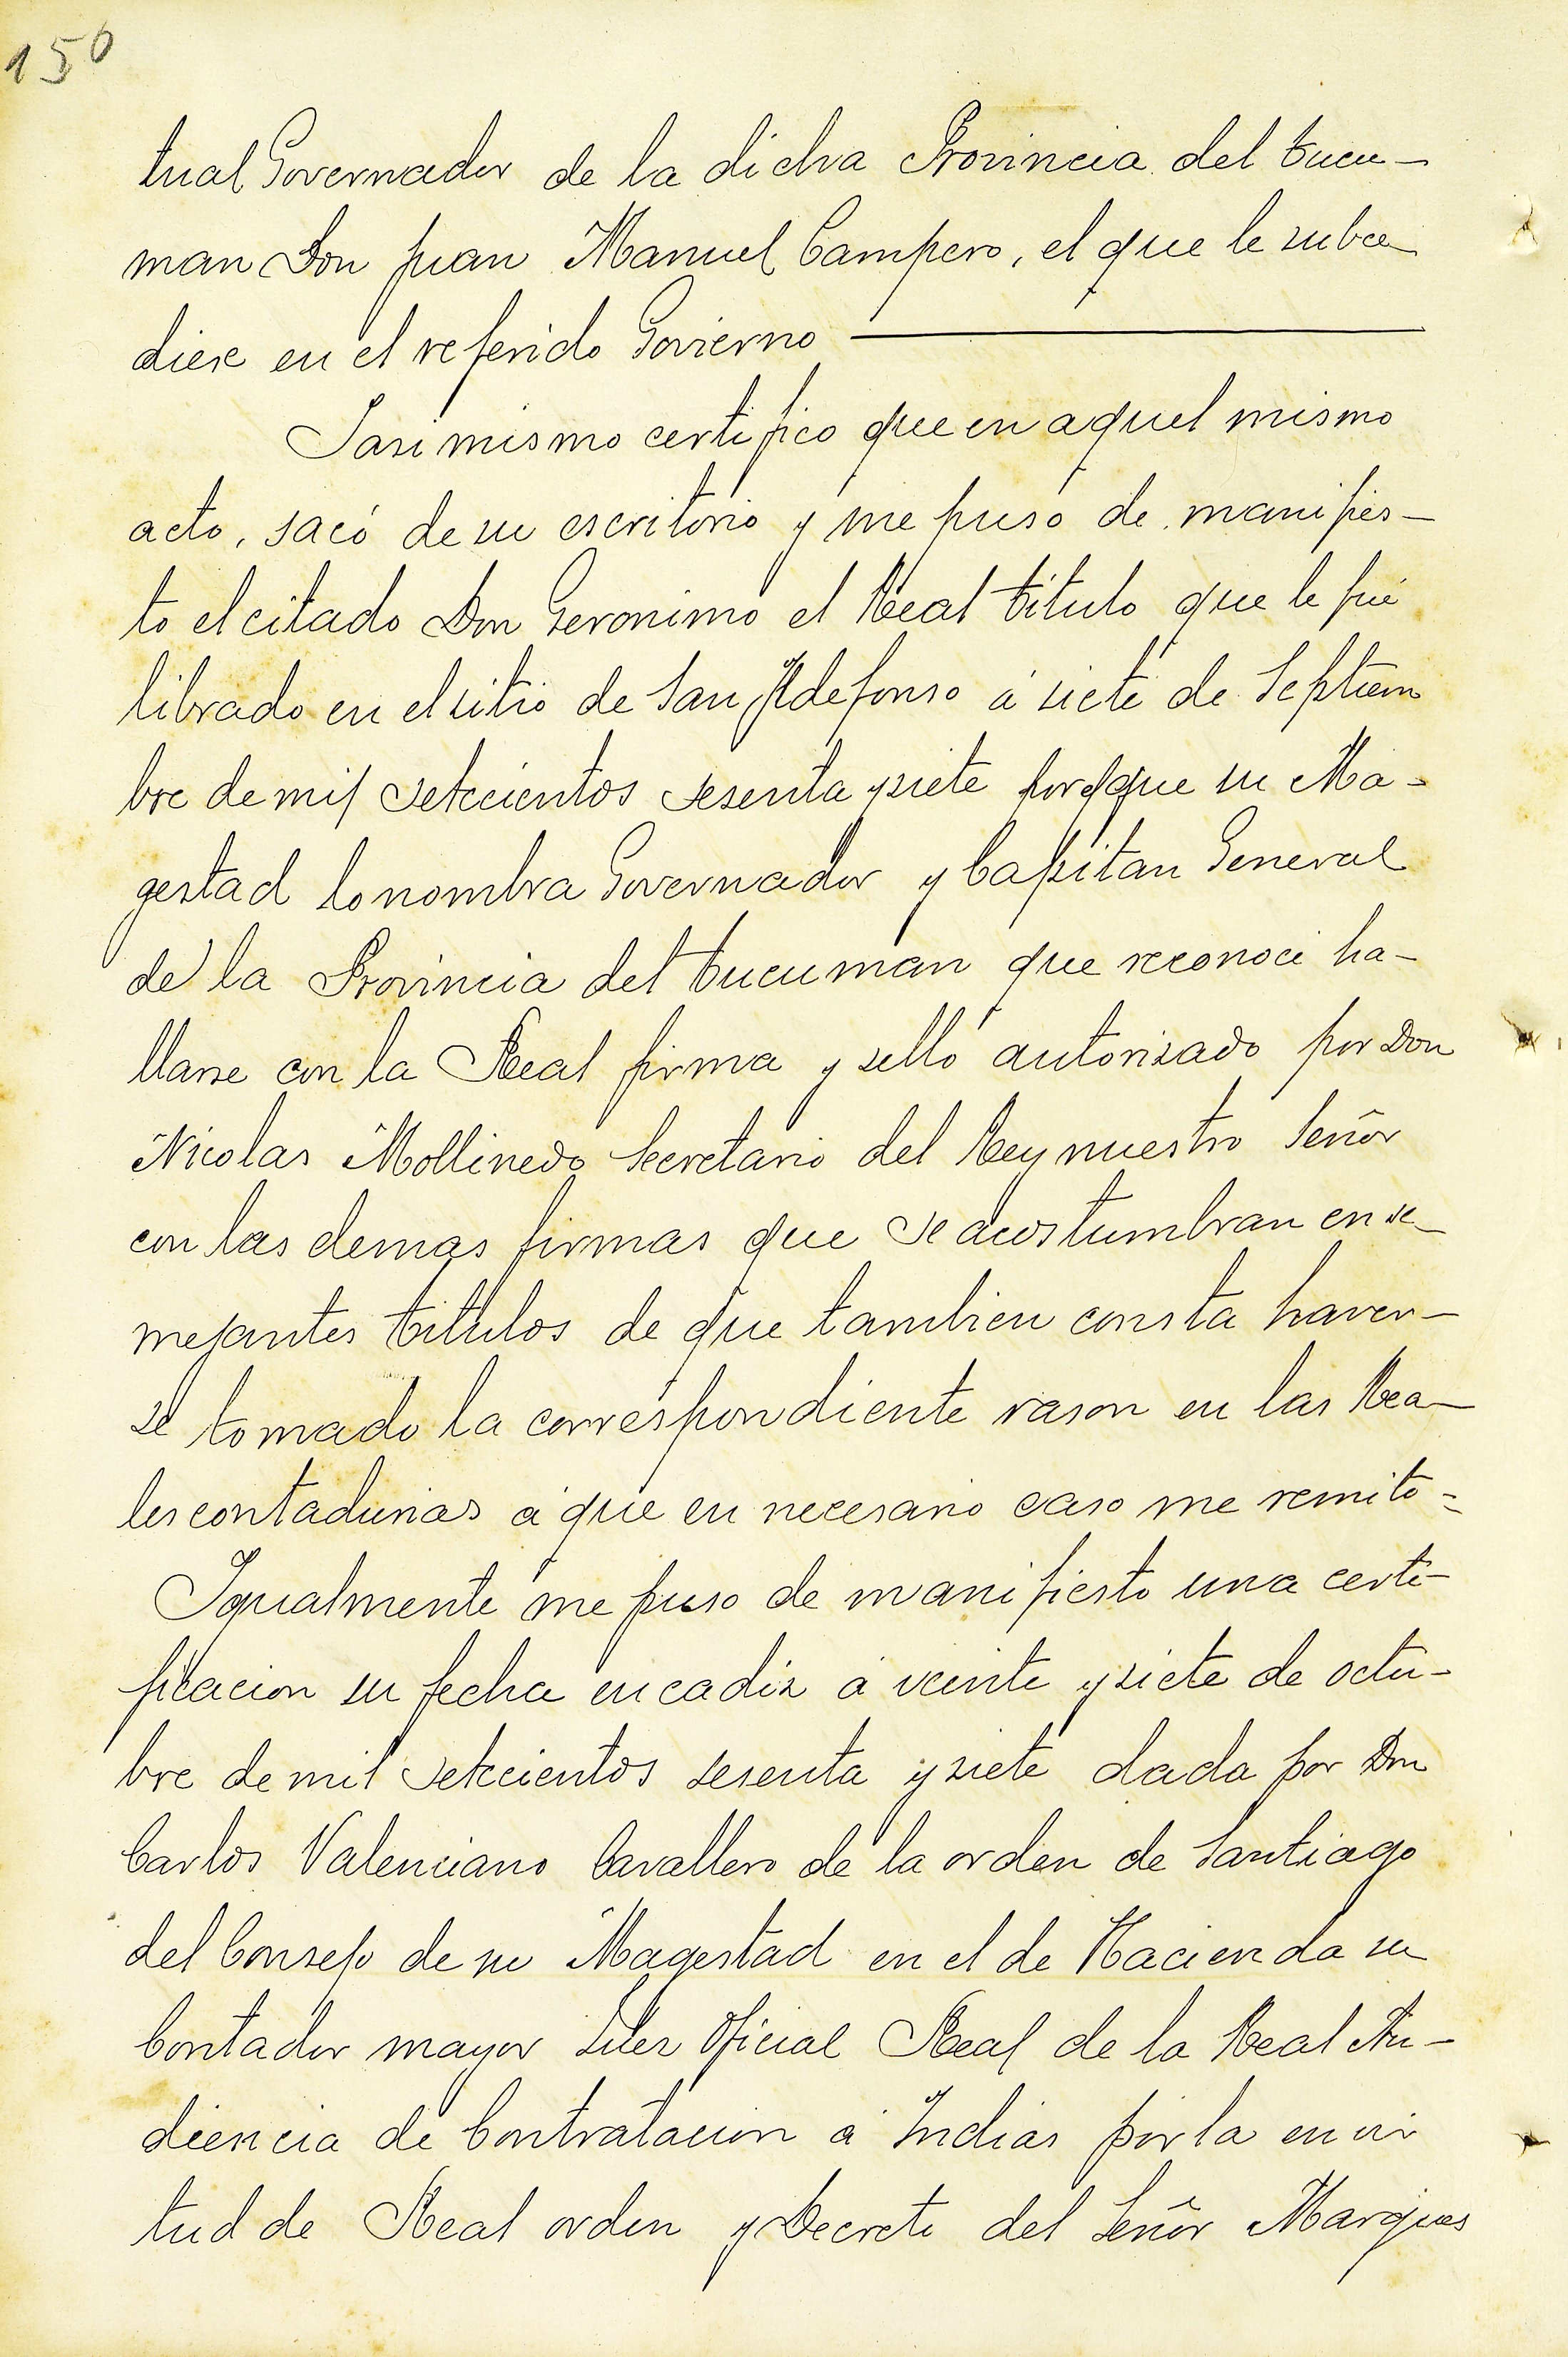 150
tual Governador de la dicha Provincia del tucu-
man Don Juan Manuel Campero, el que le subce
diese en el referido Govierno
Iasimismo certifico que en aquel mismo
acto, sacó de su escritorio y me puso de manifies-
to el citado Don Geronimo el Real titulo que le fué
librado en el sitio de San Ildefonso á siete de Septiem
bre de mil setecientos sesenta y siete por que su Ma-
gestad lo nombra Governador y Capitan General
de la Provincia del tucuman que reconoci ha-
llarse con la Real firma y sello autorisado por Don
Nicolas Mollinedo Secretario del Rey nuestro Señor
con las demas firmas que se acostumbran en se-
mejantes titulos de que tambien consta haver-
se tomado la correspondiente rason en las Rea-
les contadurias á que en necesario caso me remito=
Igualmente me puso de manifiesto una certi-
ficacion su fecha en cadiz á veinte y siete de octu-
bre de mil setecientos sesenta y siete dada por Don
Carlos Valenciano Cavallero de la orden de Santiago
del Consejo de su Magestad en el de Hacienda su
Contador mayor Juez Oficial Real de la Real Au-
diencia de Contratacion á Indias por la en vir
tud de Real orden y Decreto del Señor Marques